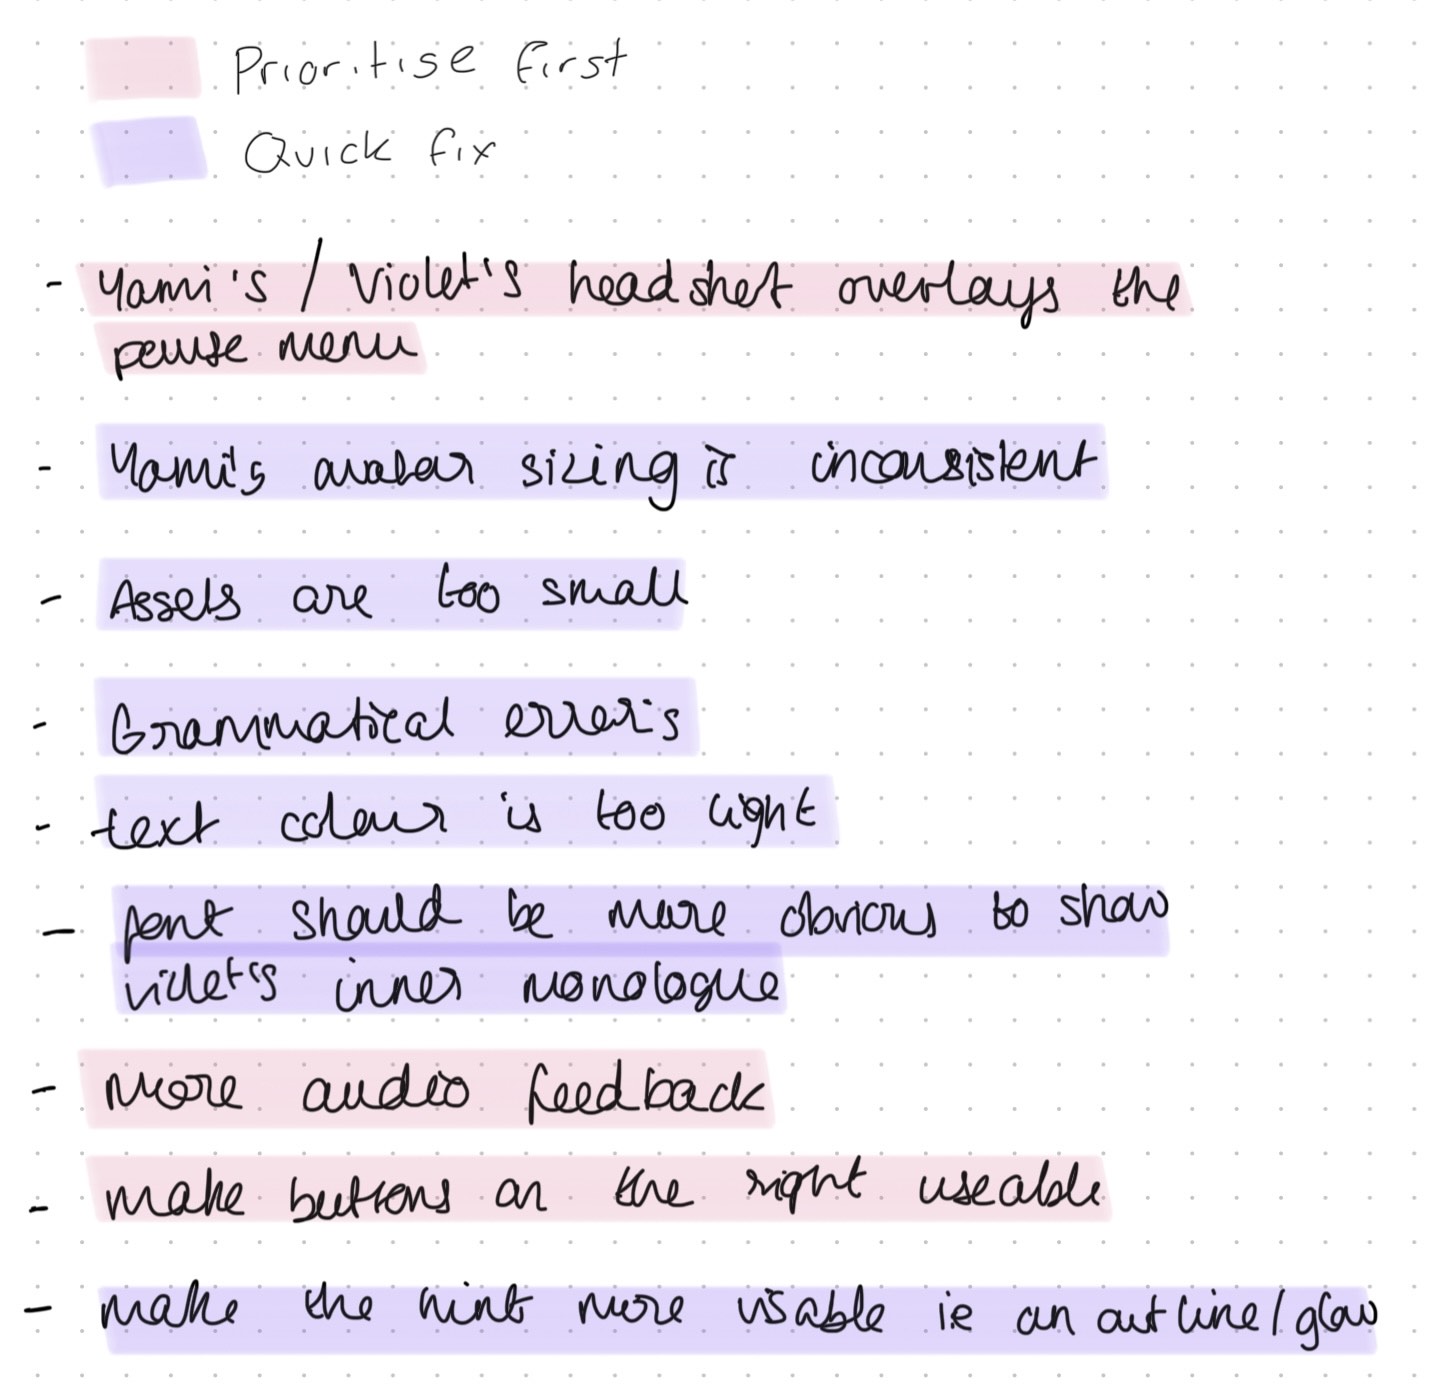 Prioritise first
Quick fix
- Yami's / Violet's headshot overlays the
pause menu
- Yami's avatar sizing is inconsistent
- Assets are too small
- Grammatical errors
- text colour is too light
- font should be more obvious to show
violet's inner monologue
- more audio feedback
- make buttons on the right useable
- make the hint more usable ie an outline/glow